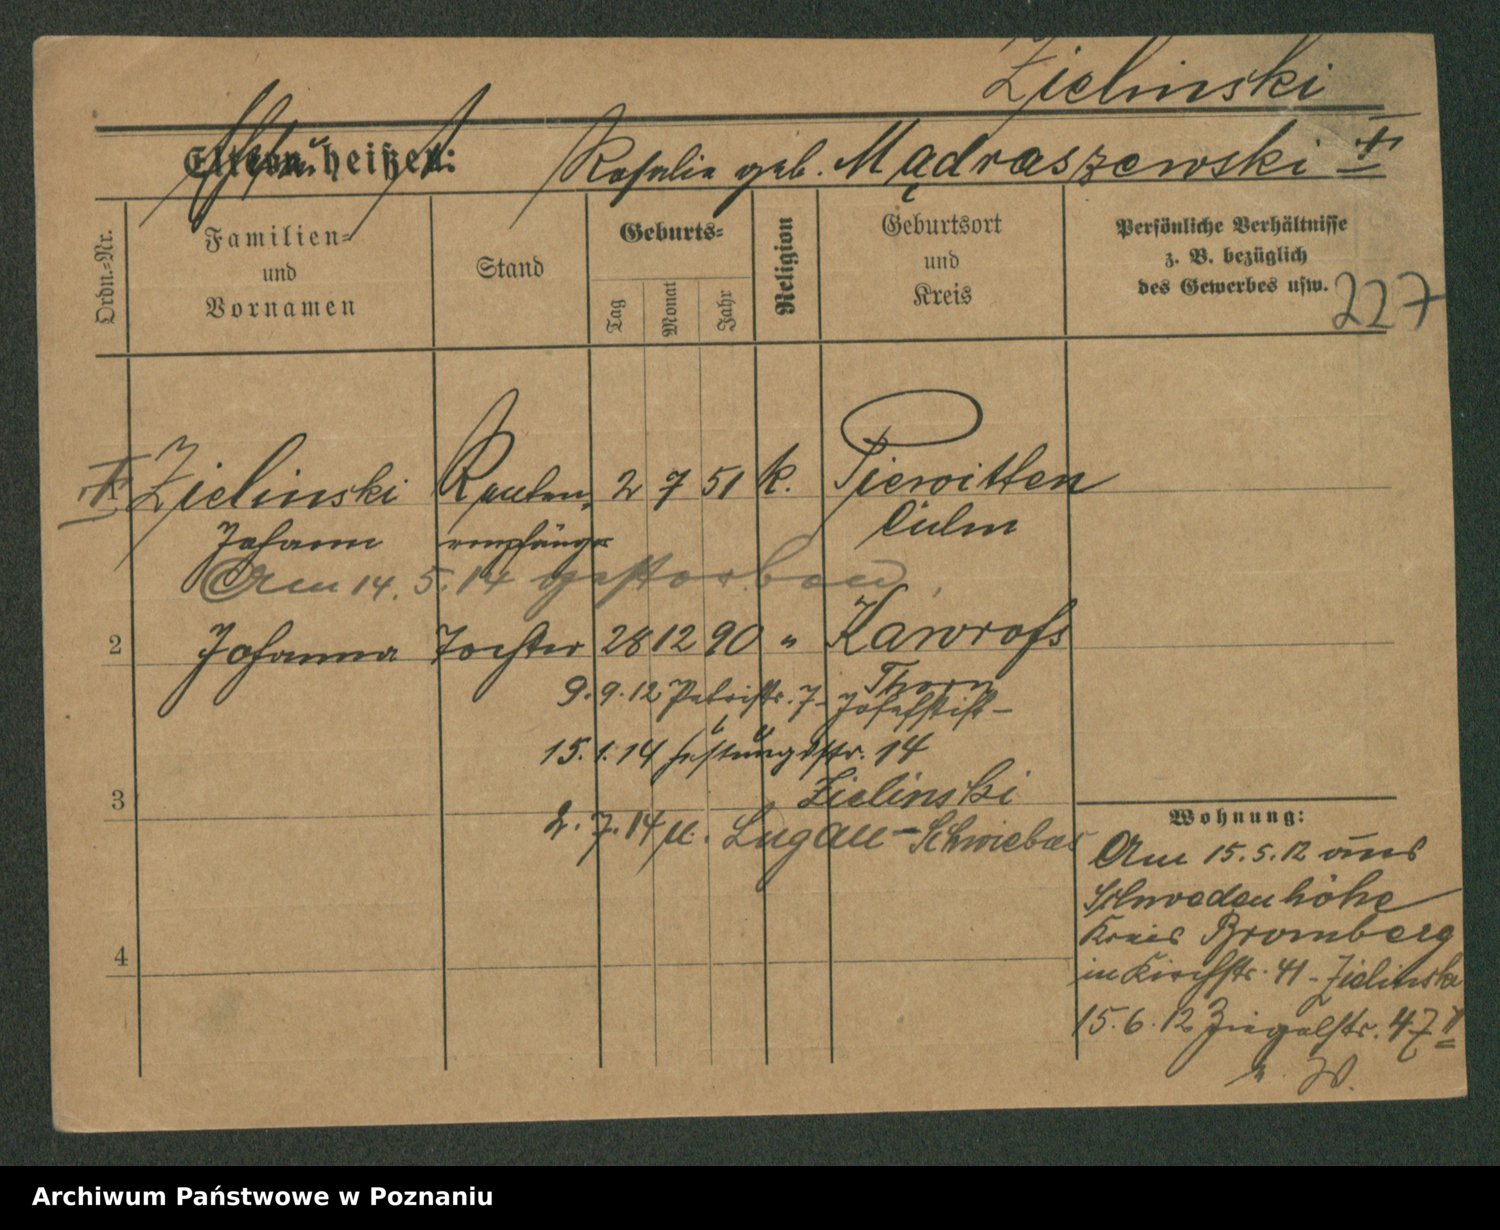 Zielinski
Eltern heißen: Rosalie geb. Mądraszewski †
Ordn.=Nr.
Familien=
und
Vornamen
Stand
Geburts=
Tag
Monat
Jahr
Religion
Geburtsort
und
Kreis
Persönliche Verhältnisse
z. B. bezüglich
des Gewerbes usw.
227
† 1 Zielinski Renten, 2 7 51 k. Piewitten
Johann empfänger Culm
Am 14. 5. 14 gestorben
2 Johanna Tochter 28 12 90 "
Thorn
9. 9. 12 Petristr. 7 - Josefstift -
15. 1. 14 Festungsstr. 14
Zielinski
3
2. 7. 14 n. Lugau - Schwiebus
4
Wohnung:
Am 15. 5. 12 aus
Schwedenhöhe
Kreis Bromberg
in Kirchstr. 41 - Zielinski
15. 6. 12 Ziegelstr. 47 II
W.
Archiwum Państwowe w Poznaniu